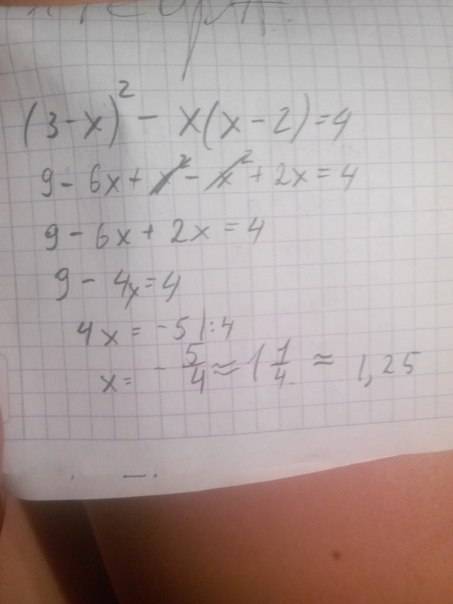 (3-x)² - x(x-2)=4
9 - 6x + x² - x² + 2x = 4
9 - 6x + 2x = 4
9 - 4x = 4
4x = -5 |:4
x = - 5/4 ≈ 1 1/4 ≈ 1,25